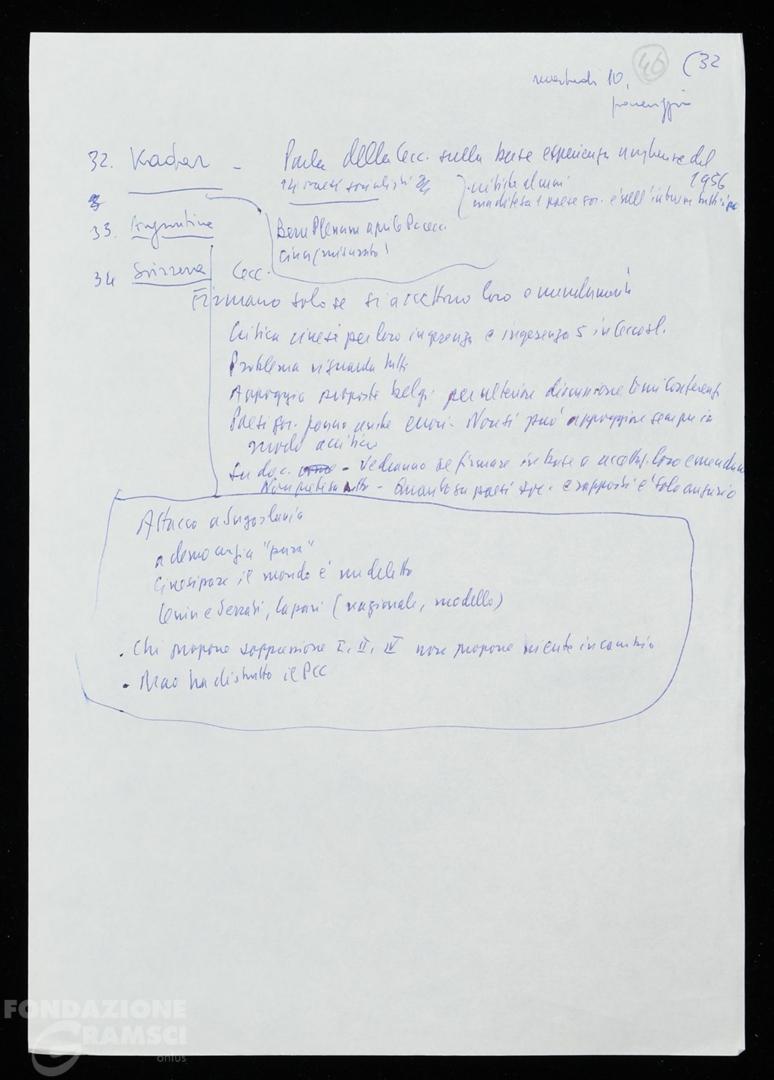 46 (32
martedì 10,
pomeriggio
32. Kadar - Parla della Cecc. sulla base esperienza ungherese del 1956
14 paesi socialisti
critiche alcuni
ma difesa 1 paese soc. è nell'interesse tutti i pc
33. Argentina
Bene Plenum aprile Pc cecc.
Cina (misurato)
34 Svizzera Cecc.
Firmano solo se si accettano loro emendamenti
Critica cinesi per loro ingerenza e ingerenza 5 in Cecosl.
Problema riguarda tutti
Appoggia proposta belgi per ulteriore discussione Conferenti
Paesi soc. fanno anche errori. Non si può appoggiare sempre in
modo acritico
Su doc. - Vedranno se firmare in base a accett. loro emendam
Non pretesa tutto - Quanto su paesi soc. e rapporti è solo augurio
Attacco a Jugoslavia
a democrazia "pura"
Lenin e Serrati, Lazzari (nazionale, modello)
. Chi propone soppressione I, II, IV non propone niente in cambio
. Mao ha distrutto il PCC
FONDAZIONE
GRAMSCI
onlus